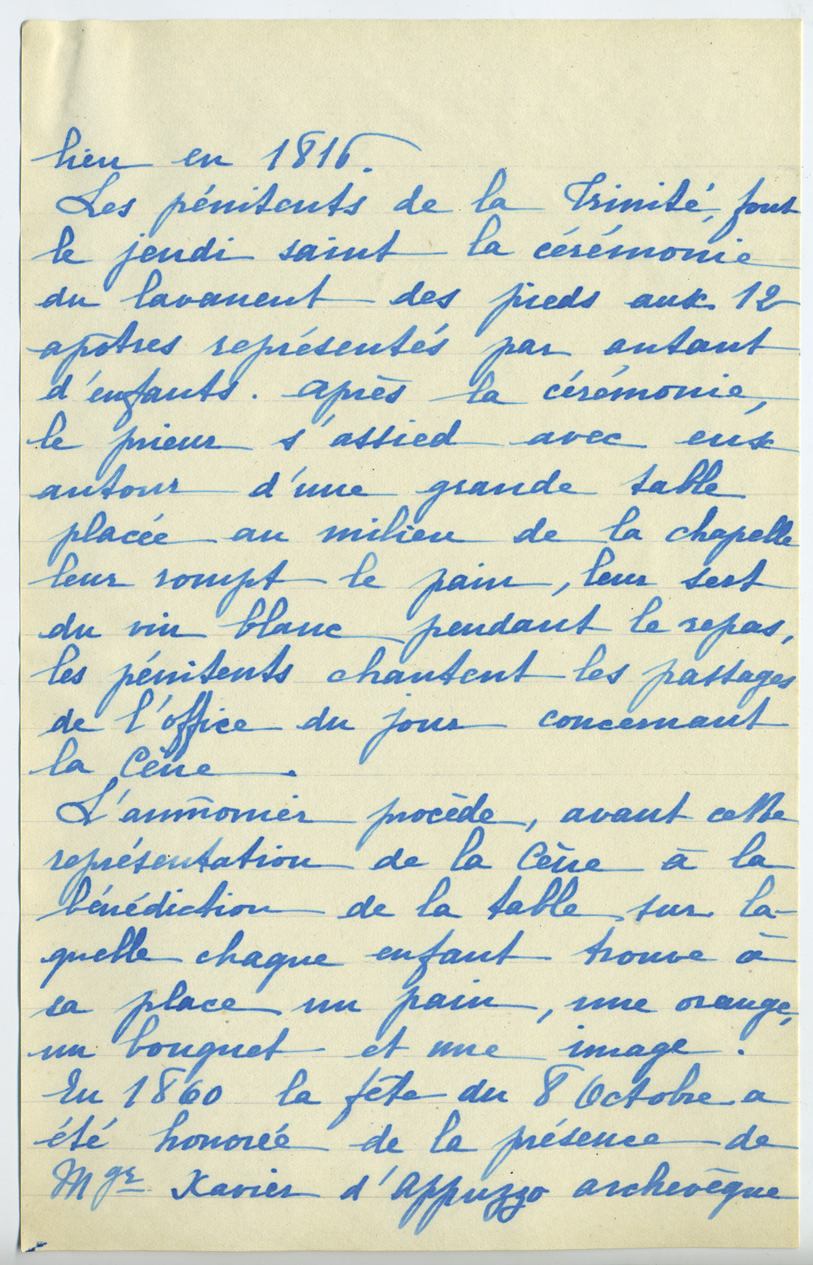 lieu en 1816.
Les pénitents de la Trinité, font
le jeudi saint la cérémonie
du lavement des pieds aux 12
apôtres représentés par autant
d'enfants. après la cérémonie,
le prieur s'assied avec eux
autour d'une grande table
placée au milieu de la chapelle
leur rompt le pain, leur sert
du vin blanc pendant le repas,
les pénitents chantent les passages
de l'office du jour concernant
la Cène.
L'aumônier procède, avant cette
représentation de la Cène à la
bénédiction de la table sur la-
quelle chaque enfant trouve à
sa place un pain, une orange,
un bouquet et une image.
En 1860 la fête du 8 Octobre a
été honorée de la présence de
Mgr Xavier d'Appuzzo archevêque